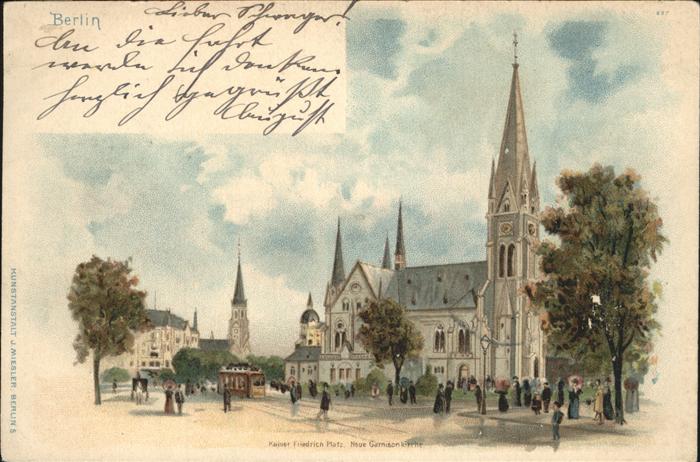 Berlin
Lieber Schwager!
An die Fahrt
werde ich denken
herzlich gegrüßt
August
637
KUNSTANSTALT J. MIESLER, BERLIN S
Kaiser Friedrich Platz. Neue Garnisonkirche